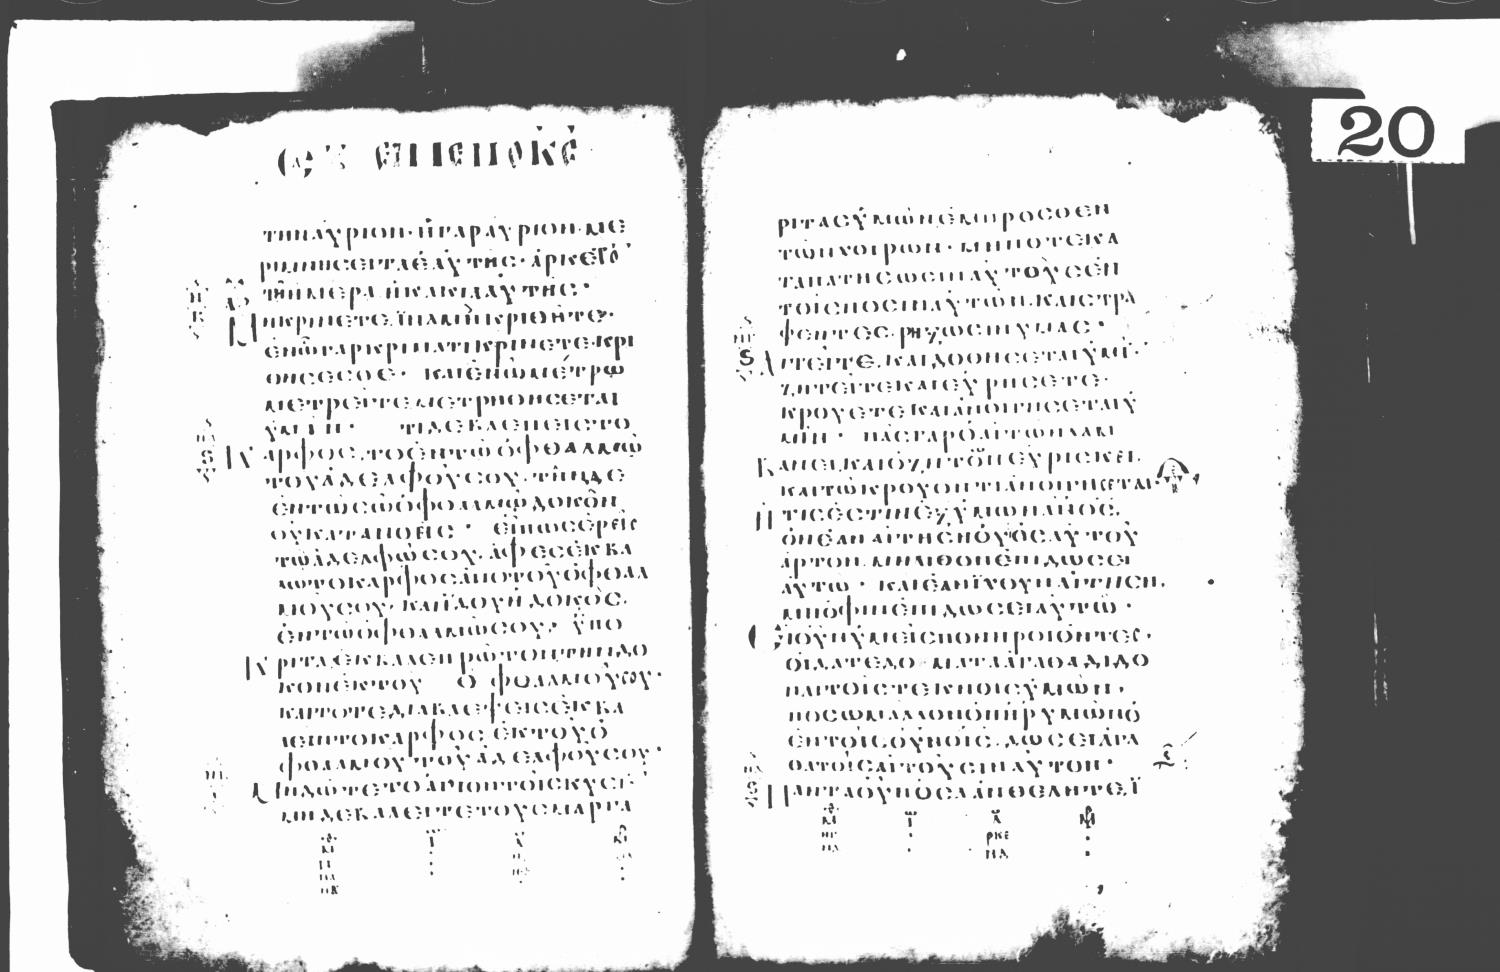 20
ΤΗΝΑΥΡΙΟΝ· ΗΓΑΡΑΥΡΙΟΝ·ΜΕ
ΡΙΜΝΗΣΕΙΤΑΕΑΥΤΗΣ· ΑΡΚΕΤΟ
ΤΗΗΜΕΡΑ ΗΚΑΚΙΑΑΥΤΗΣ·
ΜΗΚΡΙΝΕΤΕ ΙΝΑΜΗΚΡΙΘΗΤΕ·
ΕΝΩΓΑΡΚΡΙΜΑΤΙΚΡΙΝΕΤΕ·ΚΡΙ
ΘΗΣΕΣΘΕ· ΚΑΙΕΝΩΜΕΤΡΩ
ΜΕΤΡΕΙΤΕ ΜΕΤΡΗΘΗΣΕΤΑΙ
ΥΜΙΝ· ΤΙΔΕΒΛΕΠΕΙΣΤΟ
ΚΑΡΦΟΣ, ΤΟΕΝΤΩΟΦΘΑΛΜΩ
ΤΟΥΑΔΕΛΦΟΥΣΟΥ· ΤΗΝΔΕ
ΕΝΤΩΣΩΟΦΘΑΛΜΩΔΟΚΟΝ
ΟΥΚΑΤΑΝΟΕΙΣ· ΕΙΠΩΣΕΡΕΙΣ
ΤΩΑΔΕΛΦΩΣΟΥ· ΑΦΕΣΕΚΒΑ
ΛΩΤΟΚΑΡΦΟΣΑΠΟΤΟΥΟΦΘΑΛ
ΜΟΥΣΟΥ· ΚΑΙΙΔΟΥΗΔΟΚΟΣ,
ΕΝΤΩΟΦΘΑΛΜΩΣΟΥ· ΫΠΟ
ΚΡΙΤΑ ΕΚΒΑΛΕΠΡΩΤΟΝΤΗΝΔΟ
ΚΟΝΕΚΤΟΥ ΟΦΘΑΛΜΟΥΣΟΥ·
ΚΑΙΤΟΤΕΔΙΑΒΛΕΨΕΙΣΕΚΒΑ
ΛΕΙΝΤΟΚΑΡΦΟΣ ΕΚΤΟΥΟ
ΦΘΑΛΜΟΥ ΤΟΥΑΔΕΛΦΟΥΣΟΥ·
ΜΗΔΩΤΕΤΟΑΓΙΟΝΤΟΙΣΚΥΣΙ·
ΜΗΔΕΒΑΛΕΙΤΕΤΟΥΣΜΑΡΓΑ
ΡΙΤΑΣΥΜΩΝΕΜΠΡΟΣΘΕΝ
ΤΩΝΧΟΙΡΩΝ· ΜΗΠΟΤΕΚΑ
ΤΑΠΑΤΗΣΩΣΙΝΑΥΤΟΥΣΕΝ
ΤΟΙΣΠΟΣΙΝΑΥΤΩΝ·ΚΑΙΣΤΡΑ
ΦΕΝΤΕΣ· ΡΗΞΩΣΙΝΥΜΑΣ·
ΑΙΤΕΙΤΕ, ΚΑΙΔΟΘΗΣΕΤΑΙΥΜΙ·
ΖΗΤΕΙΤΕΚΑΙΕΥΡΗΣΕΤΕ·
ΚΡΟΥΕΤΕΚΑΙΑΝΟΙΓΗΣΕΤΑΙΥ
ΜΙΝ· ΠΑΣΓΑΡΟΑΙΤΩΝΛΑΜ
ΒΑΝΕΙ, ΚΑΙΟΖΗΤΩΝΕΥΡΙΣΚΕΙ,
ΚΑΙΤΩΚΡΟΥΟΝΤΙΑΝΟΙΓΗΣΕΤΑΙ·
Η ΤΙΣΕΣΤΙΝΕΞΥΜΩΝΑΝΟΣ,
ΟΝΕΑΝΑΙΤΗΣΗΟΥΙΟΣΑΥΤΟΥ
ΑΡΤΟΝ· ΜΗΛΙΘΟΝΕΠΙΔΩΣΕΙ
ΑΥΤΩ· ΚΑΙΕΑΝΙΧΘΥΝΑΙΤΗΣΗ,
ΜΗΟΦΙΝΕΠΙΔΩΣΕΙΑΥΤΩ·
ΕΙΟΥΝΥΜΕΙΣΠΟΝΗΡΟΙΟΝΤΕΣ,
ΟΙΔΑΤΕΔΟΜΑΤΑΑΓΑΘΑΔΙΔΟ
ΝΑΙΤΟΙΣΤΕΚΝΟΙΣΥΜΩΝ,
ΠΟΣΩΜΑΛΛΟΝΟΠΗΡΥΜΩΝΟ
ΕΝΤΟΙΣΟΥΝΟΙΣ· ΔΩΣΕΙΑΓΑ
ΘΑΤΟΙΣΑΙΤΟΥΣΙΝΑΥΤΟΝ·
ΠΑΝΤΑΟΥΝΟΣΑΑΝΘΕΛΗΤΕ,Ϊ